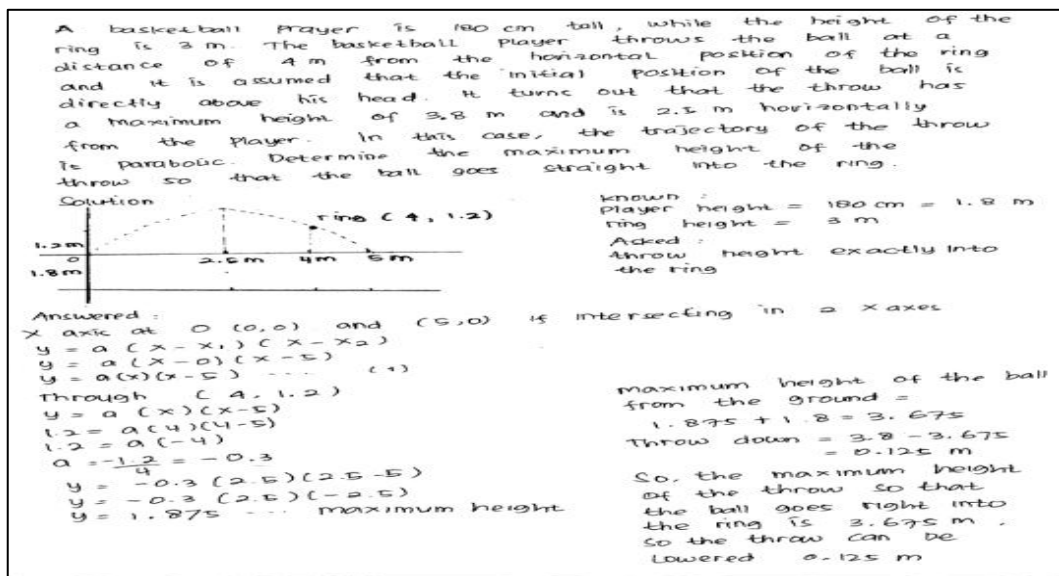 A basketball prayer is 180 cm tall, while the height of the
ring is 3 m. The basketball player throws the ball at a
distance of 4 m from the horizontal position of the ring
and it is assumed that the initial position of the ball is
directly above his head. It turns out that the throw has
a maximum height of 3.8 m and is 2.5 m horizontally
from the player. In this case, the trajectory of the throw
is parabolic. Determine the maximum height of the
throw so that the ball goes straight into the ring.
Solution
ring (4, 1.2)
1.2m
0
2.5m 4m 5m
1.8m
known :
Player height = 180 cm = 1.8 m
ring height = 3 m
Asked :
throw height exactly into
the ring
Answered :
X axis at 0 (0,0) and (5,0) if intersecting in 2 x axes
y = a (x - x₁) (x - x₂)
y = a (x - 0) (x - 5)
y = a(x)(x-5) .... (1)
Through (4, 1.2)
y = a (x)(x-5)
1.2 = a(4)(4-5)
1.2 = a(-4)
a = -1.2/4 = -0.3
y = -0.3 (2.5)(2.5-5)
y = -0.3 (2.5)(-2.5)
y = 1.875 ... maximum height
maximum height of the ball
from the ground =
1.875 + 1.8 = 3.675
Throw down = 3.8 - 3.675
= 0.125 m
So, the maximum height
of the throw so that
the ball goes right into
the ring is 3.675 m.
so the throw can be
Lowered 0.125 m